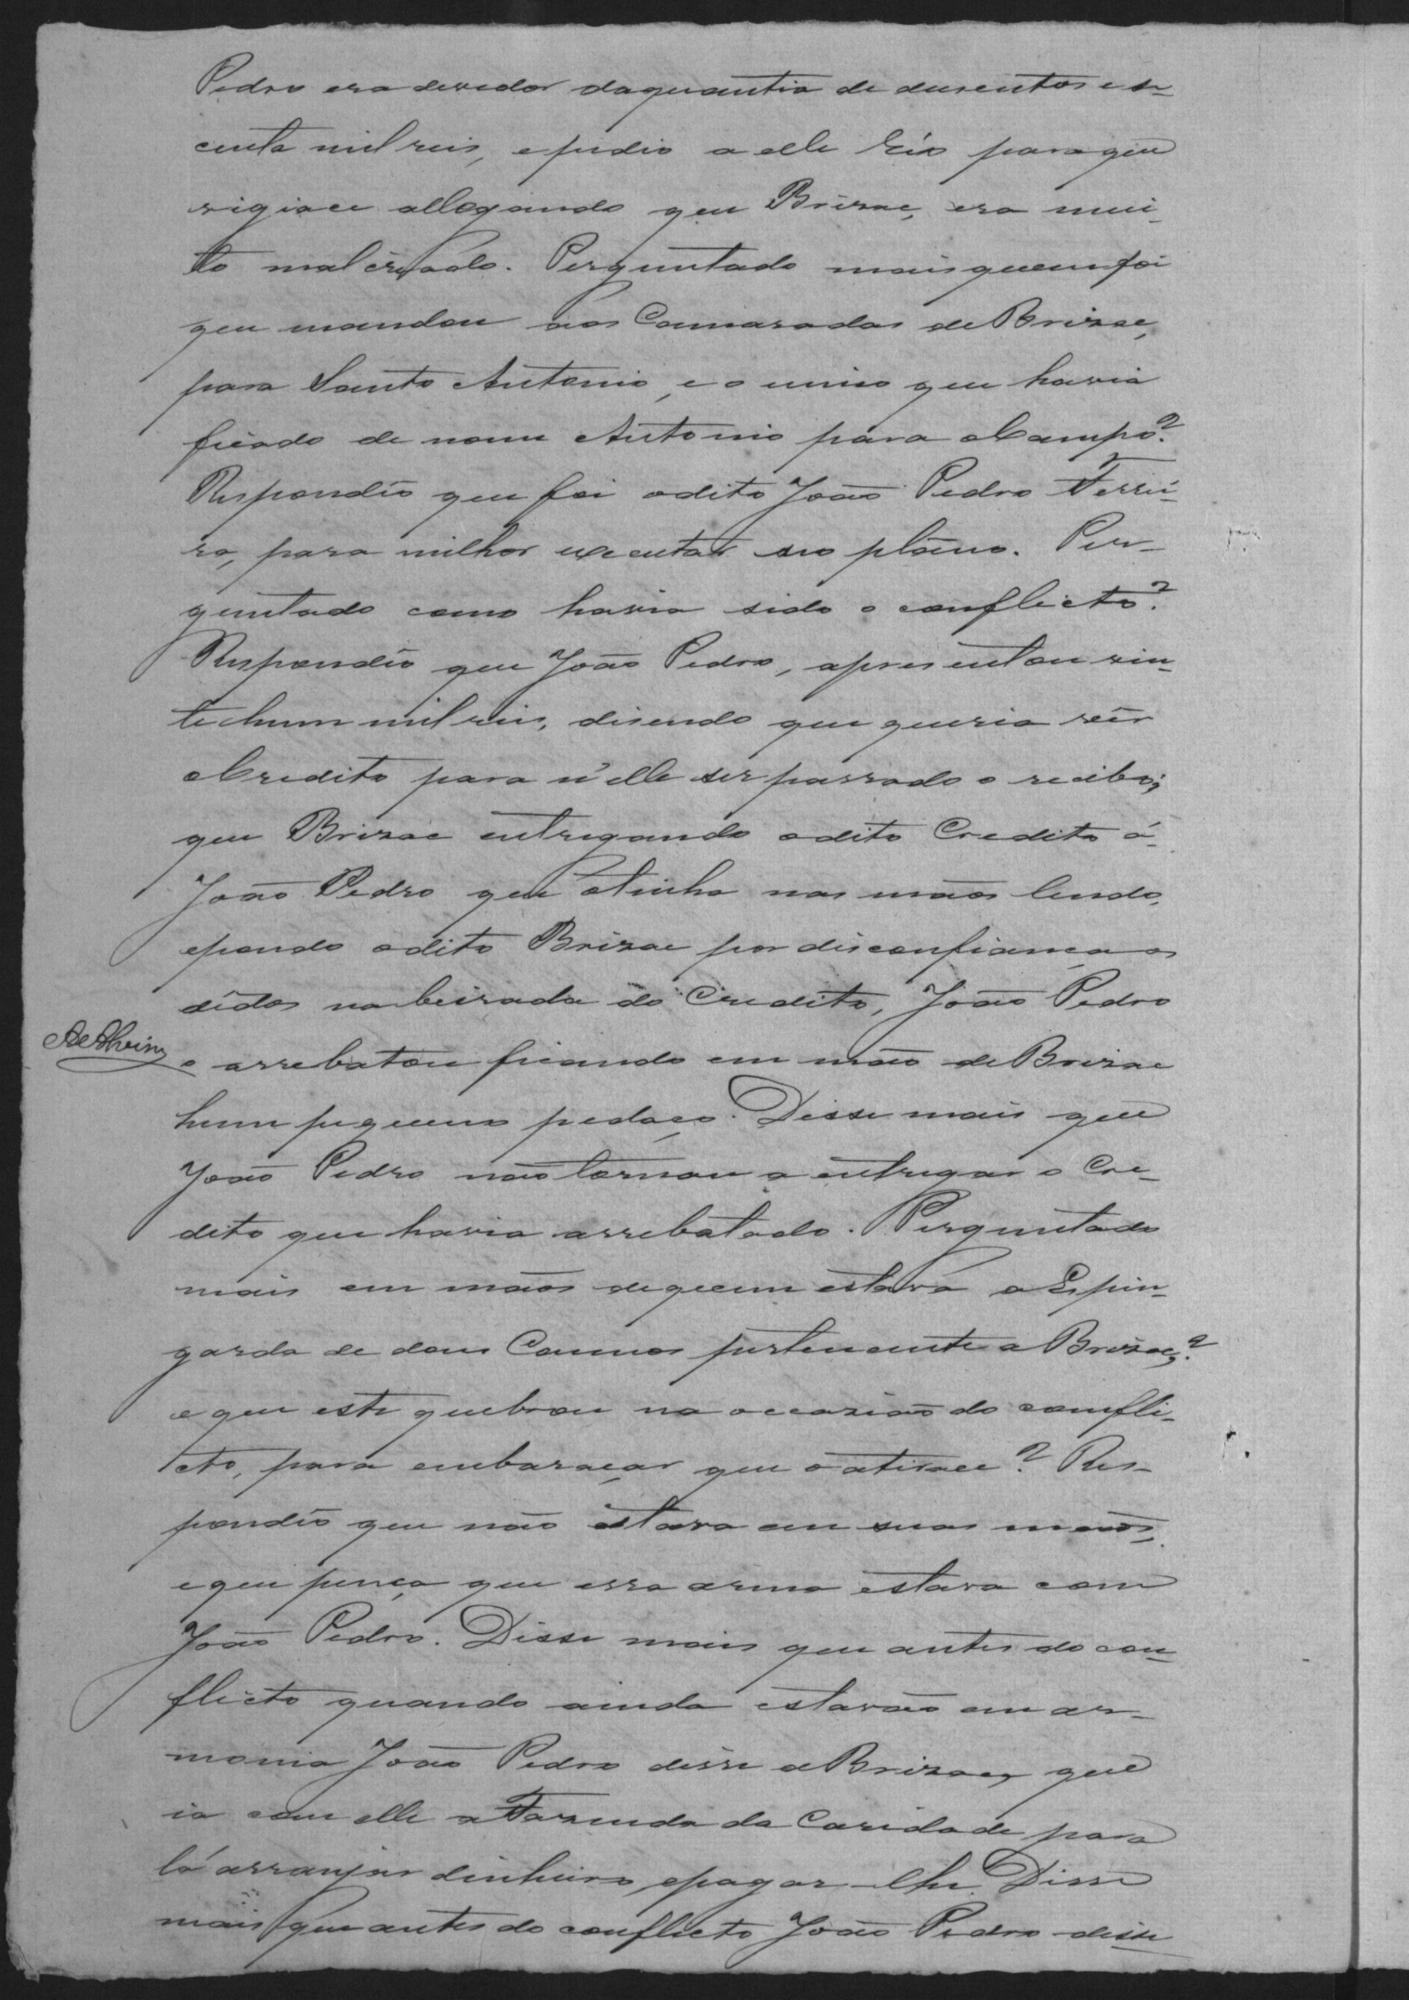 Pedro era devedor daquantia de dusentos e se-
centa mil reis, e pedio a elle Réo para que
vigiace allegando que Brizac, era mui-
to malcriado. Perguntado mais quem foi
que mandou aos Camaradas de Brizac,
para Santo Antonio, e o unico que havia
ficado de nome Antonio para o Campo?
Respondio que foi o dito João Pedro Ferrei-
ra, para milhor executar seo plano. Per-
guntado como havia sido o conflicto?
Respondio que João Pedro, apresentou vin-
te e hum mil reis, disendo que queria ver
o Credito para n'elle ser passado o recibo;
que Brizac entregando o dito Credito á
João Pedro que o tinha nas mãos lendo,
e pondo o dito Brizac por disconfiança os
dedos na beirada do Credito, João Pedro
o arrebatou ficando em mão de Brizac
hum pequeno pedaço. Disse mais que
João Pedro não tornou a entregar o Cre-
dito que havia arrebatado. Perguntado
mais em mãos de quem estava a Espin-
garda de dous Cannos pertencente a Brizac,?
e que este quebrou na occazião do confli-
cto, para embaraçar que o atirace? Res-
pondio que não estava em suas mãos,
e que pença que essa arma estava com
João Pedro. Disse mais que antes do con-
flicto quando ainda estavão em ar-
monia João Pedro disse a Brizac, que
ia com elle a Fazenda da Caridade para
lá arranjar dinheiro, e pagar-lhe. Disse
mais que antes do conflicto João Pedro disse